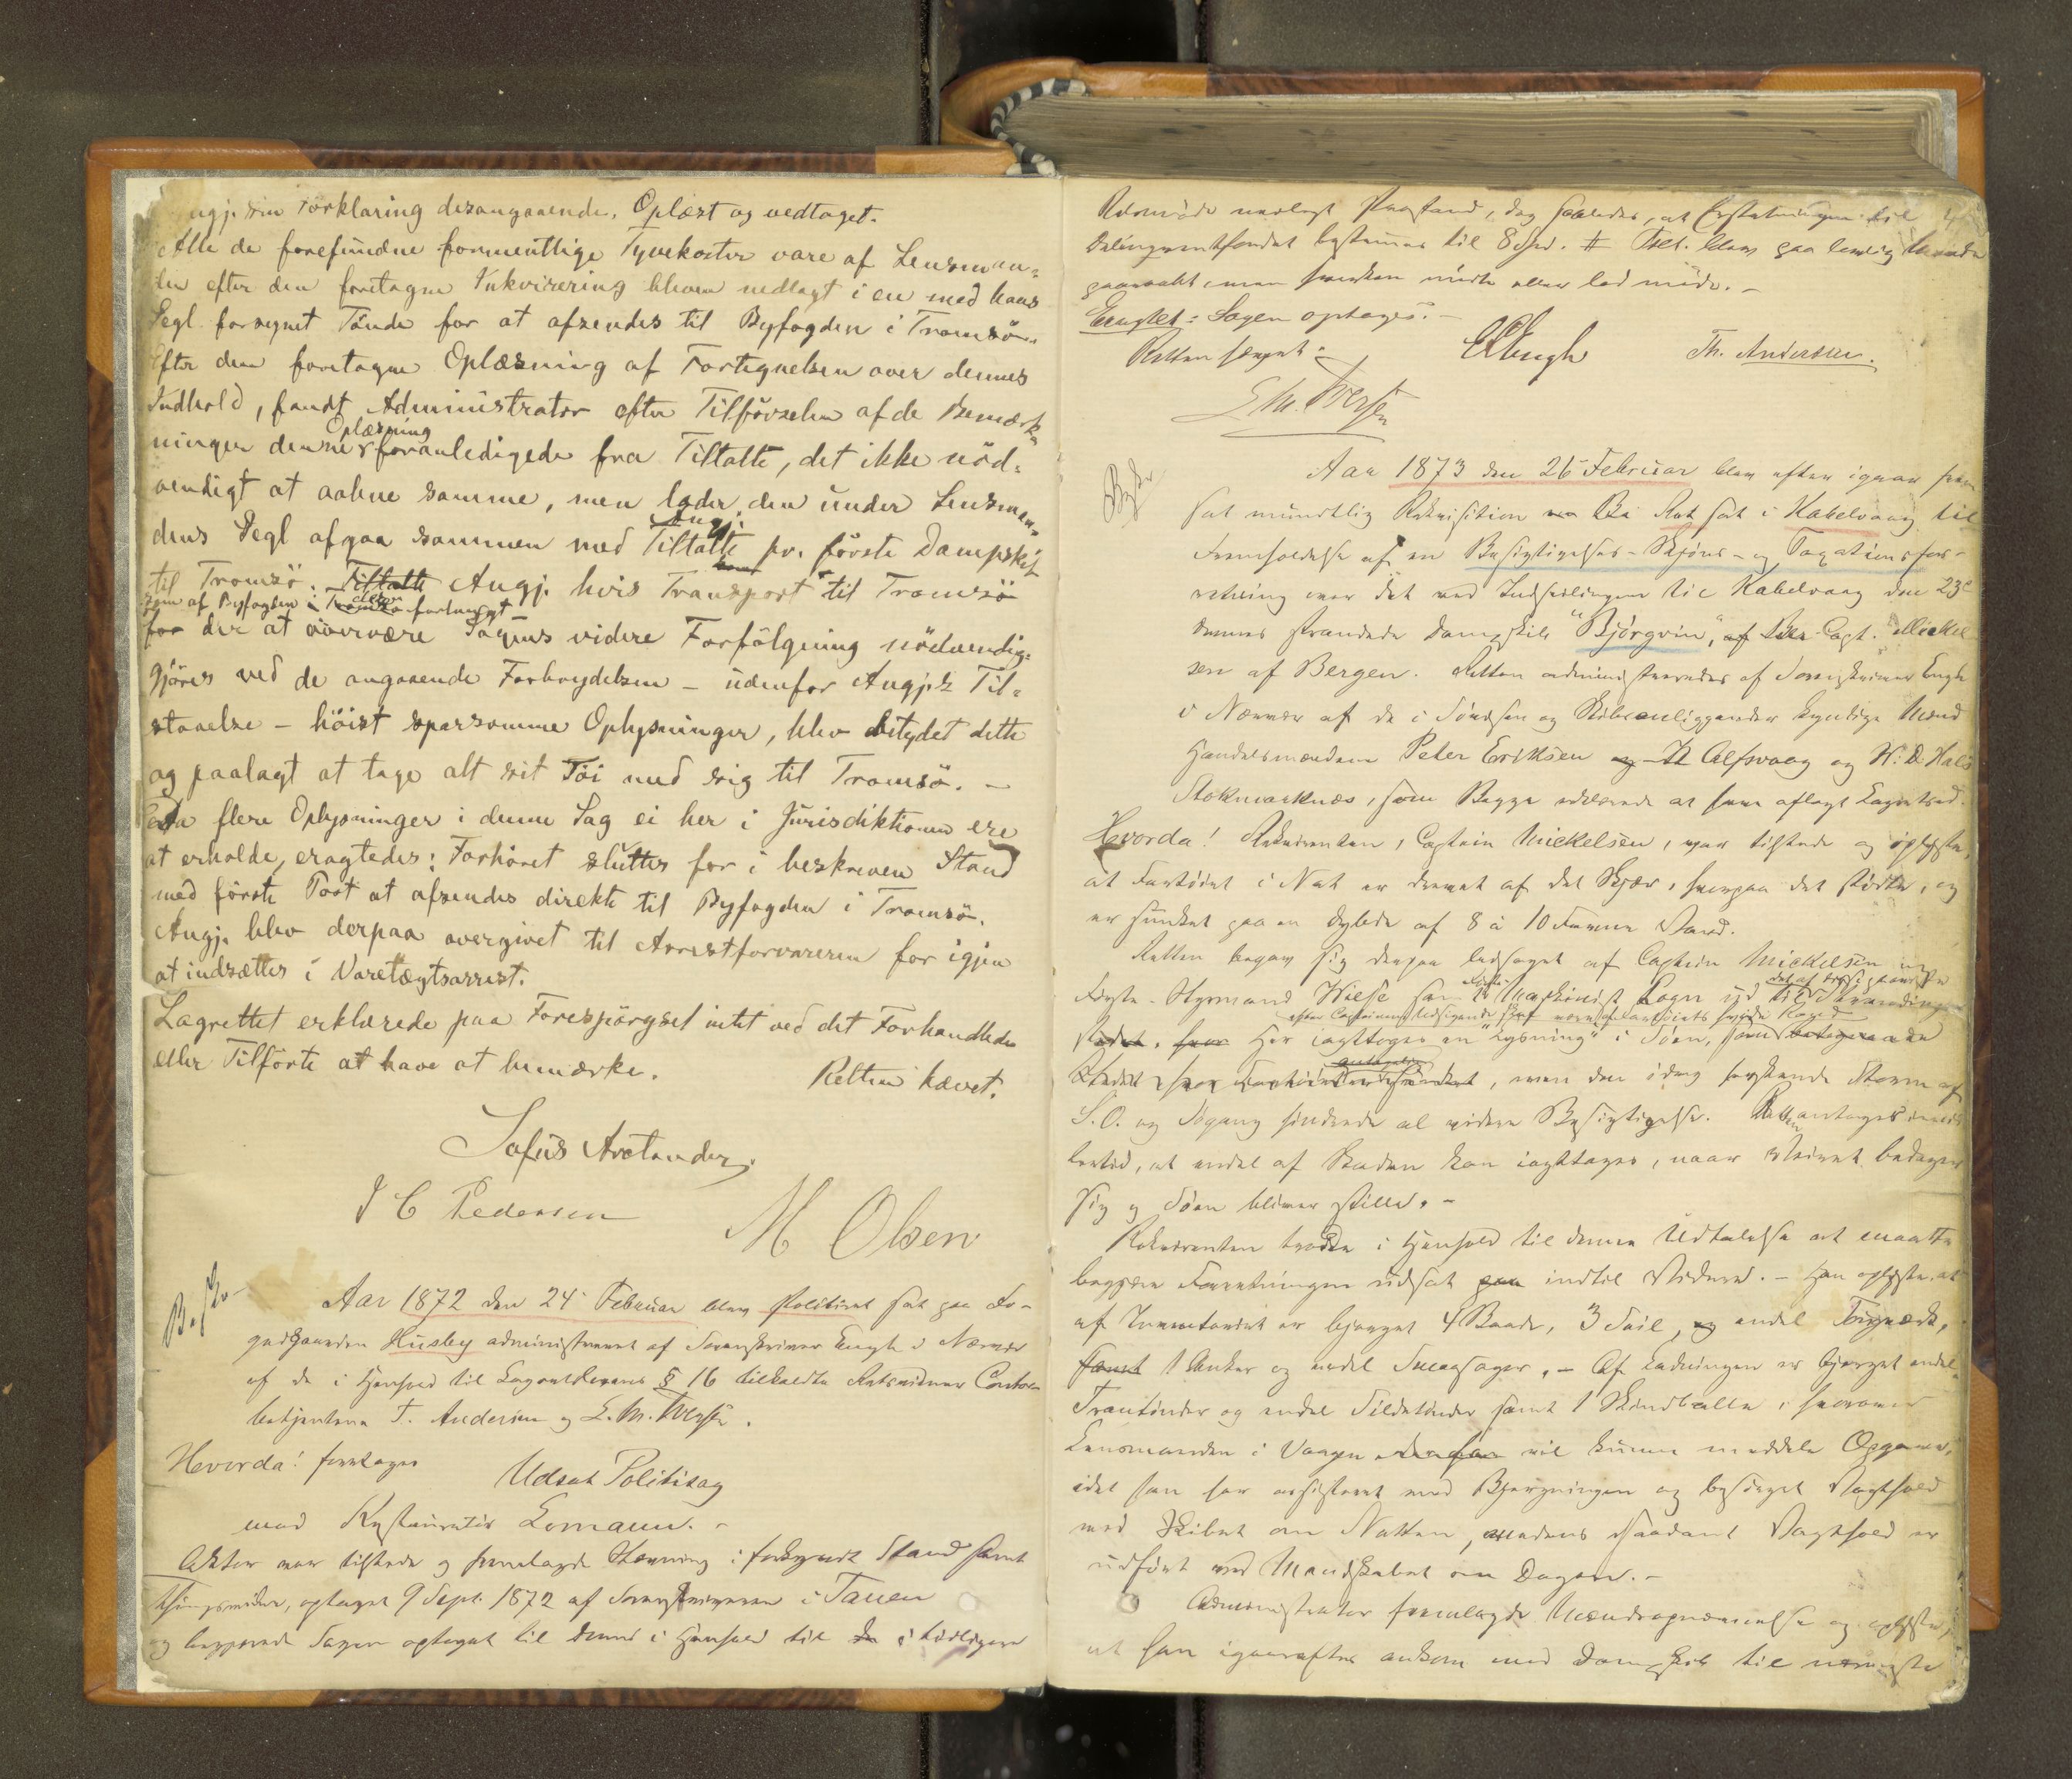 Angj. sin Forklaring desangaaende. Oplæst og vedtaget.
Alle de forefundne formentlige Tyvekoster vare af Lensman-
den efter den foretagne Inkvirering bleven nedlagt i en med hans
Segl forsynet Tönde for at afsendes til Byfogden i Tromsö.
Efter den foretagne Oplæsning af Fortegnelsen over dennes
Indhold, fandt Administrator efter Tilförselen af de Bemærk-
Oplæsning
ningen dennes foranledigede fra Tiltalte, det ikke nöd-
vendigt at aabne samme, men lader den under Lensman-
Angj.
dens Segl afgaa sammen med Tiltalte pr. förste Dampskib
til Tromsö. Tiltalte Angj. hvis Transport til Tromsö
som af Byfogden i Tromsö forlangt
for der at övervære Sagens videre Forfölgning nödvendig-
gjöres ved de angaaende Forbrydelsen - udenfor Angj.s Til-
staaelse - höist sparsomme Oplysninger, blev betydet dette
og paalagt at tage alt sit Töi med sig til Tromsö. -
Da flere Oplysninger i denne Sag ei her i Jurisdiktionen ere
at erholde, eragtedes: Forhöret sluttes for i beskreven Stand
med förste Post at afsendes direkte til Byfogden i Tromsö.
Angj. blev derpaa overgivet til Arrestforvareren for igjen
at indsættes i Varetægtsarrest.
Lagrettet erklærede paa Forespörgsel intet ved det Forhandlede
eller Tilförte at have at bemærke.
Retten hævet.
Sofus Arctander
J C Pedersen
M Olsen
Aar 1872 den 24 Februar blev Politiret sat paa Fo-
gedgaarden Husby administreret af Sorenskriver Engh i Nærvær
af de i Henhold til Lagretslovens § 16 tilkaldte Retsvidner Contor-
betjentene T. Andersen og E. M. Iversen.
Hvorda! foretages
Udsat Politisag
mod Restauratör Lomann. -
Aktor var tilstede og fremlagde Stevning i forkyndt Stand samt
Thingsvidne, optaget 9 Sept. 1872 af Sorenskriveren i Tanen
og begjærede Sagen optaget til Dom i Henhold til de i tidligere
Retsmöde nedlagt Paastand, dog saaledes, at Erstatningen til
Delinqventfondet bestemmes til 8 Spd. # Tilt. blev paa lovlig Maade
paaraabt, men hverken mödte eller lod möde. -
Eragtet: Sagen optages. -
Retten hævet.
EEngh
Th. Andersen.
E M. Iversen
Aar 1873 den 26 Februar blev efter igaar frem-
sat mundtlig Rekvisition Ret sat i Kabelvaag til
Fremholdelse af en Besigtigelses-Skjöns- og Taxationsfor-
retning over det ved Indseilingen til Kabelvaag den 23de
dennes strandede Dampskib "Björgvin", Capt. Mickel-
sen af Bergen. Retten administreredes af Sorenskriver Engh
i Nærvær af de i Sövæsen og Skibsanliggender kyndige Mænd
Handelsmændene Peter Eriksen Alfsvaag og H. D. Hals
Stokmarknæs, som Begge erklærede at have aflagt Lagretsed.
Hvorda! Rekvirenten, Captein Mickelsen, var tilstede og oplyste,
at Fartöiet i Nat er drevet af det Skjær, hvorpaa det stödte, og
er sunket paa en Dybde af 8 à 10 Favne Vand.
Retten begav sig derpaa ledsaget af Captein Mickelsen og
Förste-Styrmand Wiese samt Maskinist Pagen ud til Stranding-
stedet. Her iagttoges en "Lysning" i Söen,
Stedet hvor Fartöiet er sunket, men den idag herskende Storm af
S.O. og Sögang hindrede al videre Besigtigelse. Retten antager imid-
lertid, at endel af Skaden kan iagttages, naar Veiret bedager
sig og Söen bliver stille. -
Rekvirenten troede i Henhold til denne Udtalelse at maatte
begjære Forretningen udsat indtil videre. - Han oplyste, at
af Inventariet er bjerget 4 Baade, 3 Seil, og endel Tougværk,
samt 1 Anker og endel Smaasager. - Af Ladningen er bjerget endel
Trantönder og endel Sildetönder samt 1 Skindballe, hvorom
Lensmanden i Vaagen vil kunne meddele Opgave,
idet han har assisteret med Bjergningen og besörget Vagthold
med Skibet om Natten, medens saadant Vagthold er
udfört med Mandskabet om Dagen. -
Administrator fremlagde Mændsopnævnelse og oplyste,
at han igaaraftes ankom med Dampskib til nærmeste